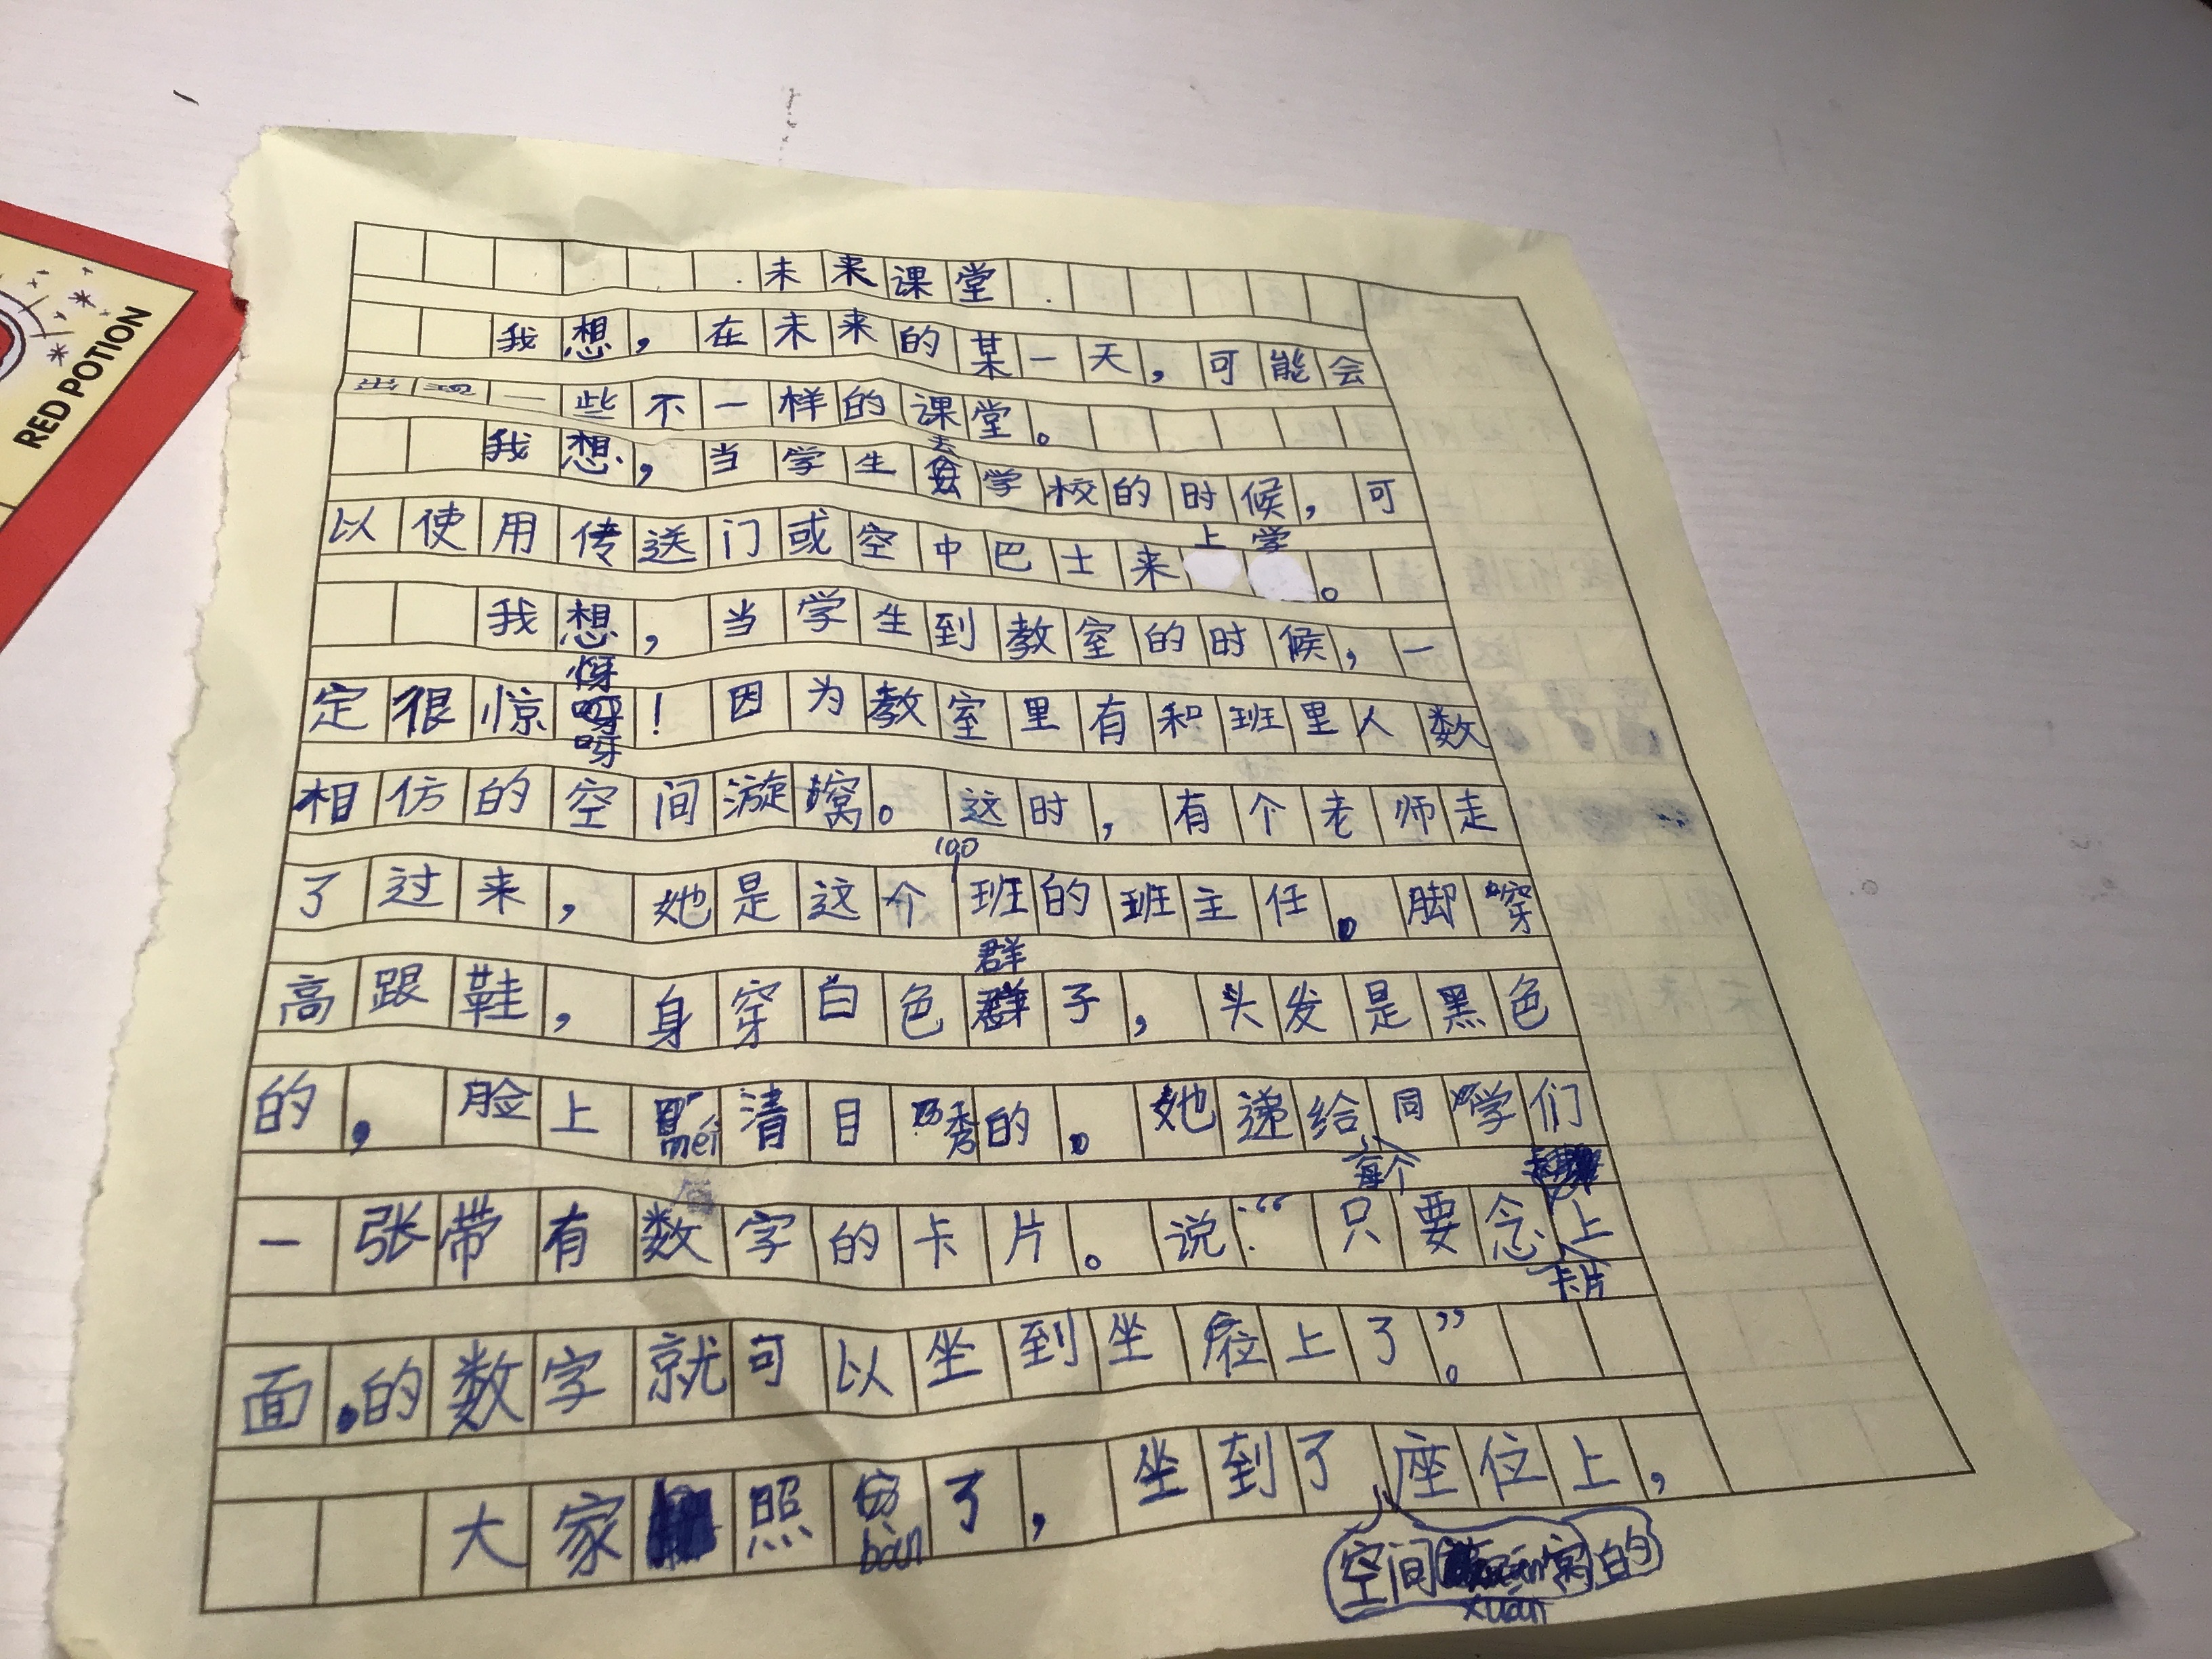 RED POTION
未来课堂
我想，在未来的某一天，可能会
出现一些不一样的课堂。
我想，当学生去学校的时候，可
以使用传送门或空中巴士来上学。
我想，当学生到教室的时候，一
定很惊讶！因为教室里有和班里人数
相仿的空间漩窝。这时，有个老师走
了过来，她是这个100班的班主任。脚穿
高跟鞋，身穿白色群子，头发是黑色
的，脸上méi清目秀的。她递给每个同学们
一张带有数字的卡片。说：“只要念卡片上
面的数字就可以坐到坐位上了”。
大家照bàn了，坐到了空间xuán窝的座位上，